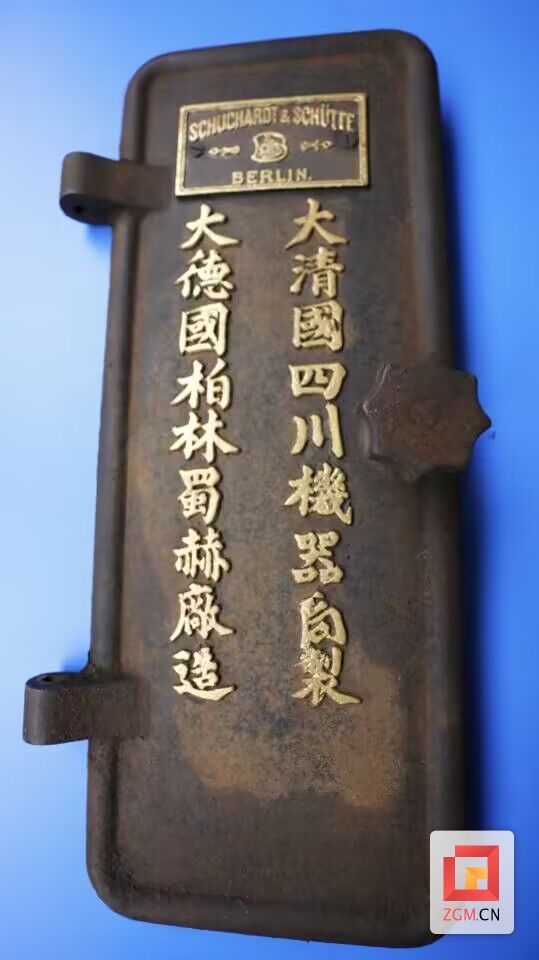 SCHUCHARDT & SCHÜTTE
BERLIN.
大清國四川機器局製
大德國柏林蜀赫廠造
ZGM.CN